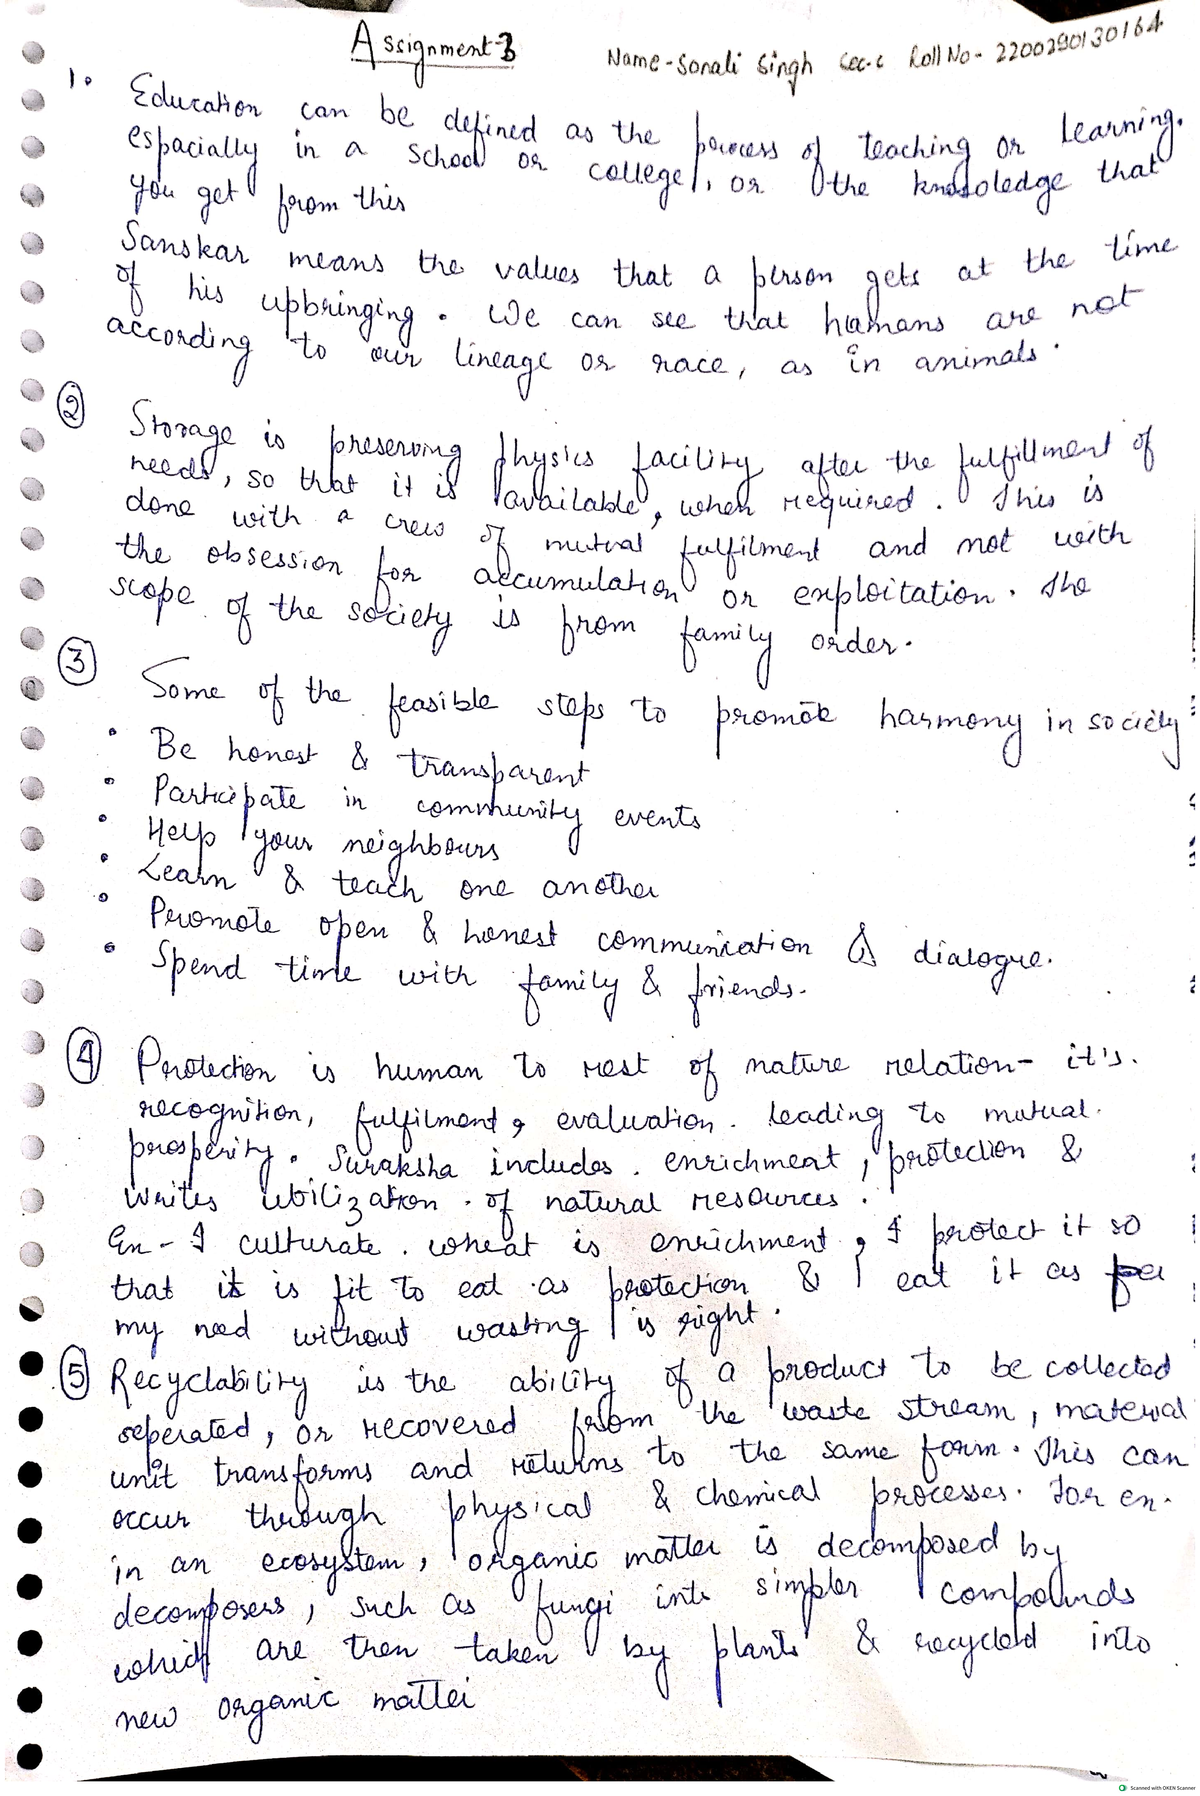 Assignment-3
Name-Sonali Singh Sec-c Roll No- 2200290130164
1. Education can be defined as the process of teaching or learning.
espacially in a school or college, or the knowledge that
you get from this
Sanskar means the values that a person gets at the time
of his upbringing. We can see that humans are not
according to our lineage or race, as in animals.
2 Storage is preserving physics facility after the fulfillment of
needs, so that it is available, when required. This is
done with a crew of mutual fulfilment and not with
the obsession for accumulation or exploitation. The
scope of the society is from family order.
3 Some of the feasible steps to promote harmony in society
• Be honest & transparent
• Participate in community events
• Help your neighbours
• Learn & teach one another
• Promote open & honest communication & dialogue.
• Spend time with family & friends.
4 Protection is human to rest of nature relation- it's.
recognition, fulfilment, evaluation. leading to mutual.
prosperity. Suraksha includes. enrichment, protection &
writes utilization. of natural resources.
En- I culturate. wheat is enrichment, I protect it so
that it is fit to eat as protection & I eat it as per
my need without wasting is right.
5 Recyclability is the ability of a product to be collected
seperated, or recovered from the waste stream, material
unit transforms and returns to the same form. This can
occur through physical & chemical processes. For en.
in an ecosystem, organic matter is decomposed by
decomposers, such as fungi into simpler compounds
which are then taken by plants & recycled into
new organic matter
Scanned with OKEN Scanner